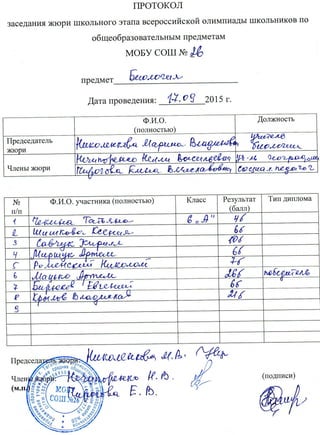 ПРОТОКОЛ
заседания жюри школьного этапа всероссийской олимпиады школьников по
общеобразовательным предметам
МОБУ СОШ № 26
предмет Биология
Дата проведения: 17.09 2015 г.
Ф.И.О. (полностью) Должность
Председатель жюри Николенкова Марина Владимировна учитель биологии
Члены жюри Нечипоренко Нелли Васильевна уч-ль географии
Пирогова Елена Вячеславовна социал. педагог
№ п/п Ф.И.О. участника (полностью) Класс Результат (балл) Тип диплома
1 Чекина Татьяна 6 „А" 4б
2 Шишкова Ксения 6б
3 Савчук Кирилл 10б
4 Мирщук Артем 6б
5 Роменский Николай 7б
6 Мацено Артем 26б победитель
7 Бирюков Евгений 6б
8 Крылов Владислав 21б
9
Председатель жюри: Николенкова М.В.
Члены жюри: Нечипоренко Н.В. (подписи)
(м.п.) Пирогова Е.В.
МОБУ
СОШ №26